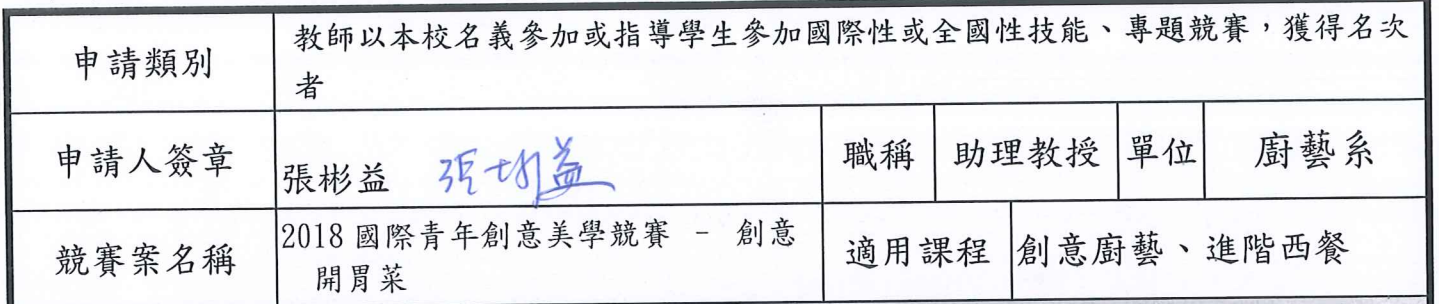 申請類別 教師以本校名義參加或指導學生參加國際性或全國性技能、專題競賽，獲得名次
者
申請人簽章 張彬益 張彬益 職稱 助理教授 單位 廚藝系
競賽案名稱 2018 國際青年創意美學競賽 – 創意
開胃菜 適用課程 創意廚藝、進階西餐